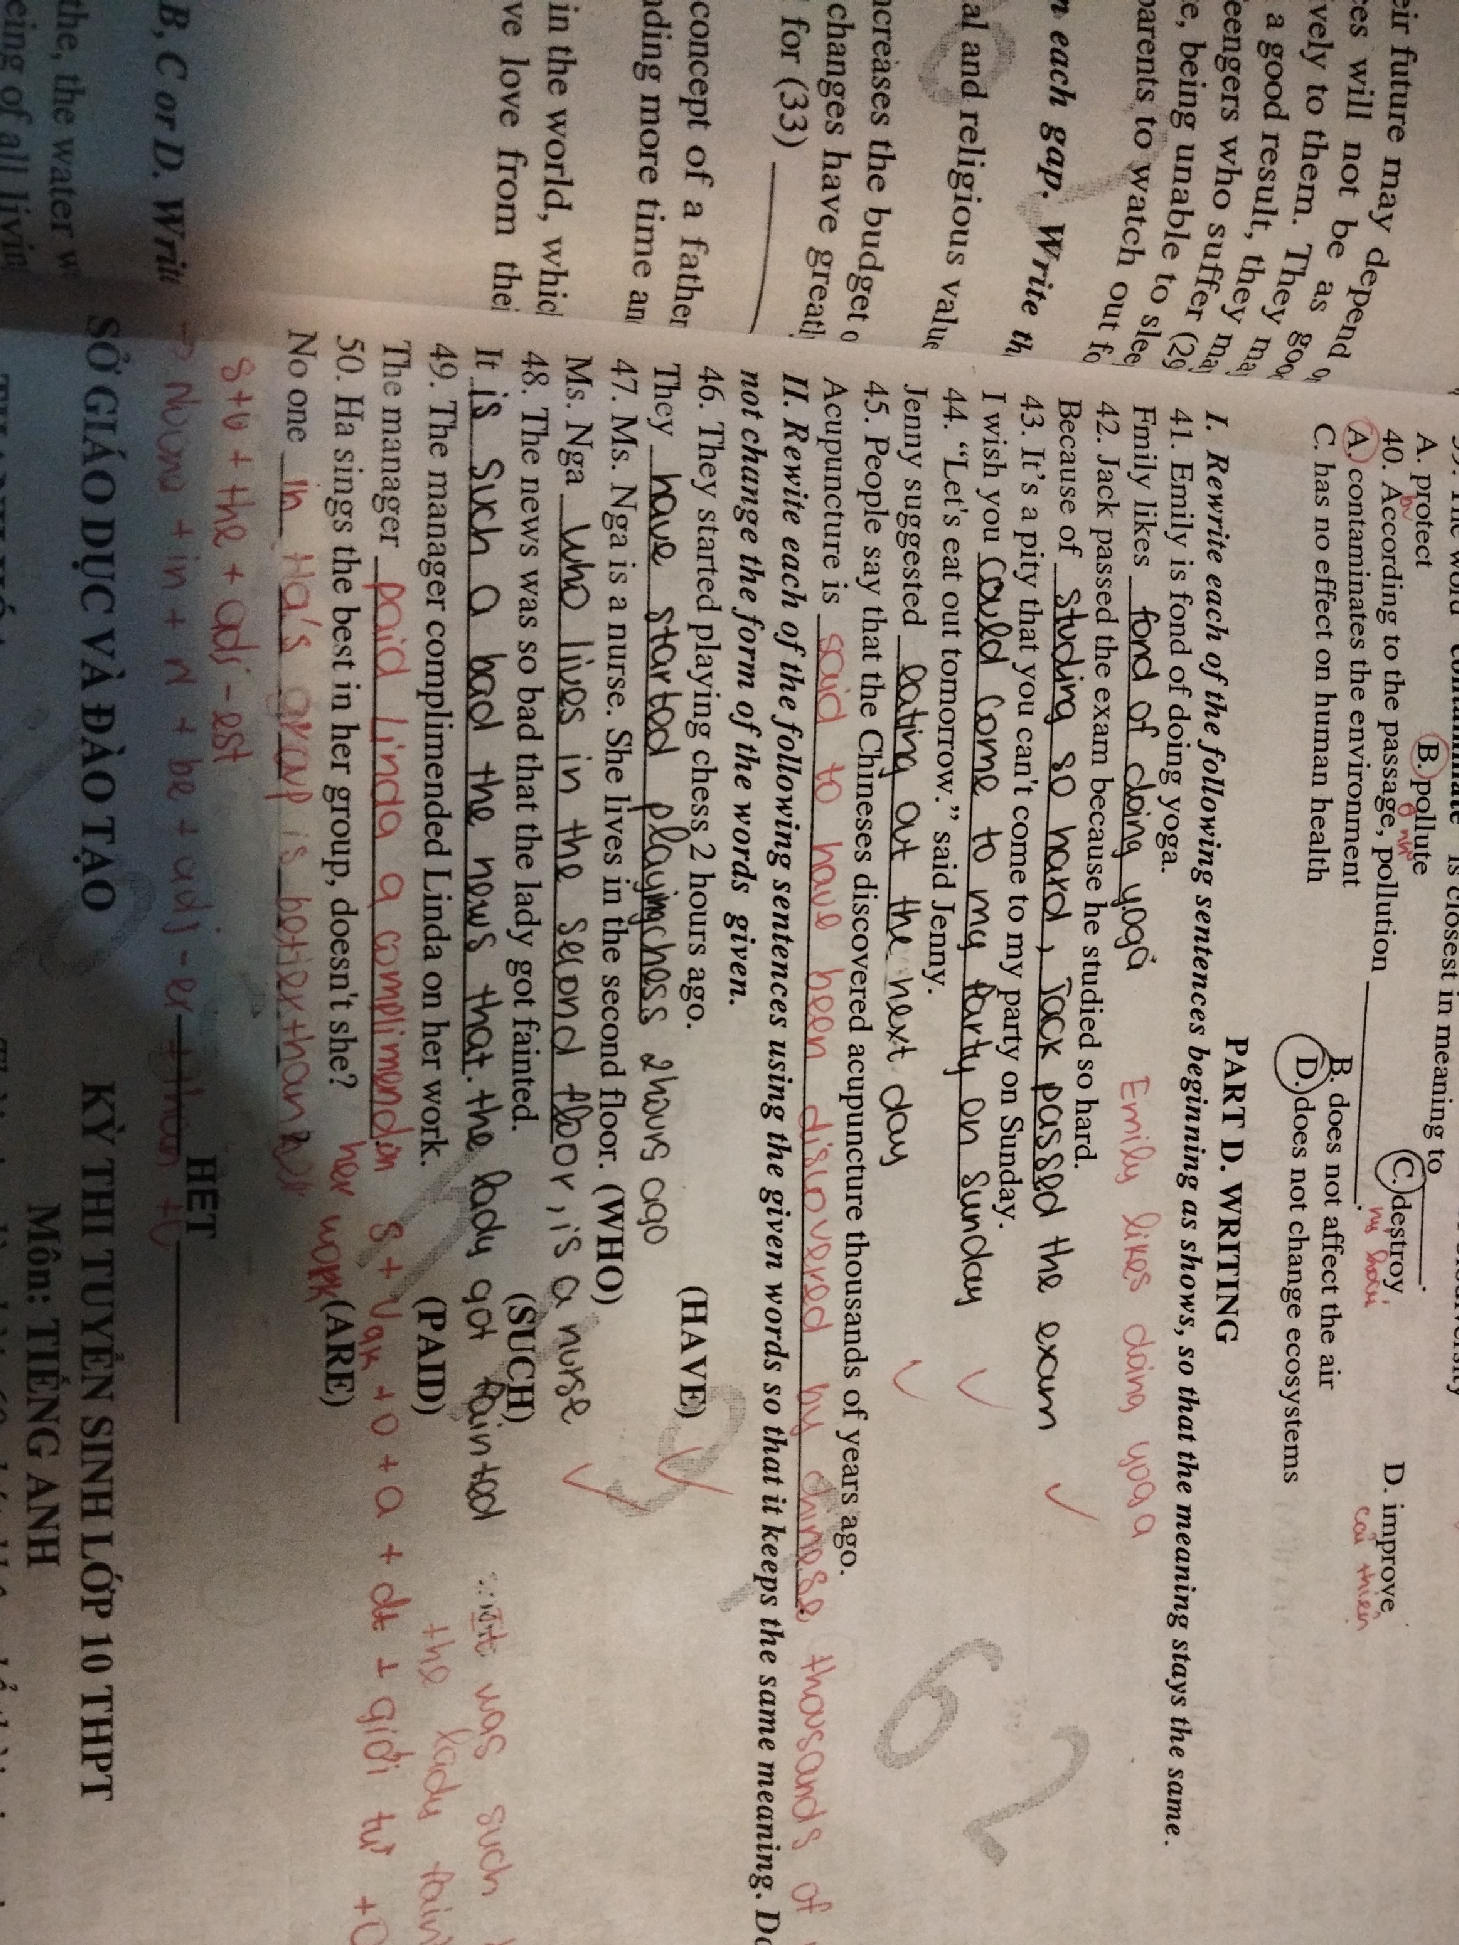 eir future may depend o
ces will not be as goo
vely to them. They ma
a good result, they ma
eengers who suffer (29
e, being unable to slee
parents to watch out fo
n each gap. Write th
al and religious value
ncreases the budget o
changes have greatl
for (33)
concept of a father
ding more time an
in the world, whic
ve love from thei
B, C or D. Writ
the, the water w
eing of all livin
is closest in meaning to
A. protect B. pollute C. destroy D. improve
cải thiện
40. According to the passage, pollution
A. contaminates the environment B. does not affect the air
C. has no effect on human health D. does not change ecosystems
PART D. WRITING
I. Rewrite each of the following sentences beginning as shows, so that the meaning stays the same.
41. Emily is fond of doing yoga.
Emily likes fond of doing yoga Emily likes doing yoga
42. Jack passed the exam because he studied so hard.
Because of studing so hard, Jack passed the exam
43. It's a pity that you can't come to my party on Sunday.
I wish you could come to my party on Sunday
44. "Let's eat out tomorrow." said Jenny.
Jenny suggested eating out the next day
45. People say that the Chineses discovered acupuncture thousands of years ago.
Acupuncture is said to have been discovered by chinese thousands of
II. Rewite each of the following sentences using the given words so that it keeps the same meaning. Do
not change the form of the words given.
46. They started playing chess 2 hours ago. (HAVE)
They have started playing chess 2 hours ago
47. Ms. Nga is a nurse. She lives in the second floor. (WHO)
Ms. Nga who lives in the second floor, is a nurse
48. The news was so bad that the lady got fainted. (SUCH)
It is such a bad the news that. the lady got fainted It was such
the lady fain
49. The manager complimended Linda on her work. (PAID)
The manager paid linda a complimended on her work S + V + O + a + dt + giới từ + O
50. Ha sings the best in her group, doesn't she? (ARE)
No one in Ha's group is better than her
S + V + the + adj - est
Noun + in + N + be + adj - er + than
HẾT
SỞ GIÁO DỤC VÀ ĐÀO TẠO KỲ THI TUYỂN SINH LỚP 10 THPT
Môn: TIẾNG ANH